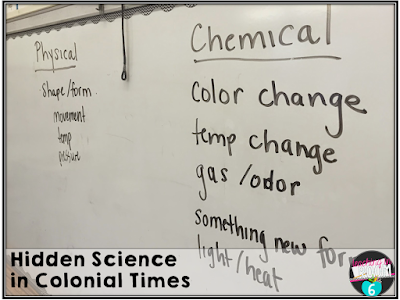 Physical
shape/form
movement
temp
pressure
Chemical
color change
temp change
gas/odor
something new for
light/heat
Hidden Science
in Colonial Times
6